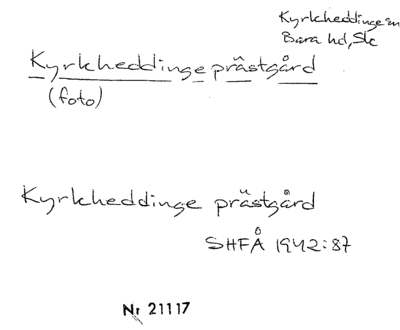 Kyrkheddinge sn
Bara hd, Sk
Kyrkheddinge prästgård
(foto)
Kyrkheddinge prästgård
SHFÅ 1942:87
Nr 21117